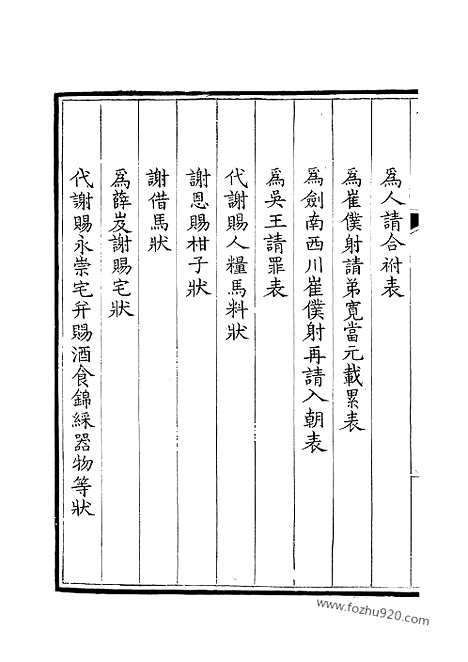 爲人請合祔表
爲崔僕射請弟寛當元載累表
爲劍南西川崔僕射再請入朝表
爲吳王請罪表
代謝賜人糧馬料狀
謝恩賜柑子狀
謝借馬狀
爲薛岌謝賜宅狀
代謝賜永崇宅幷賜酒食錦綵器物等狀
www.fozhu920.com